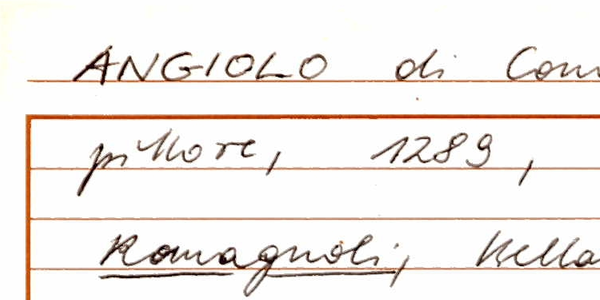 ANGIOLO di Com
pittore, 1289,
Romagnoli, Bella